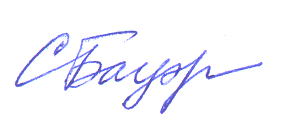 СБауэр